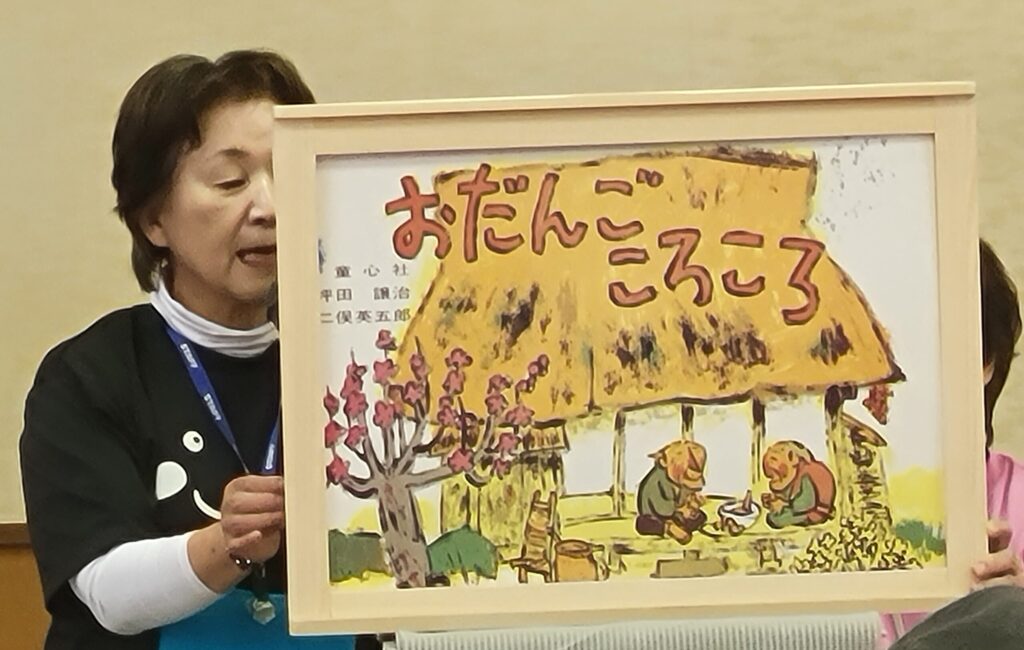 おだんご
ころころ
童心社
坪田 譲治
二俣英五郎
STAFF
STAFF